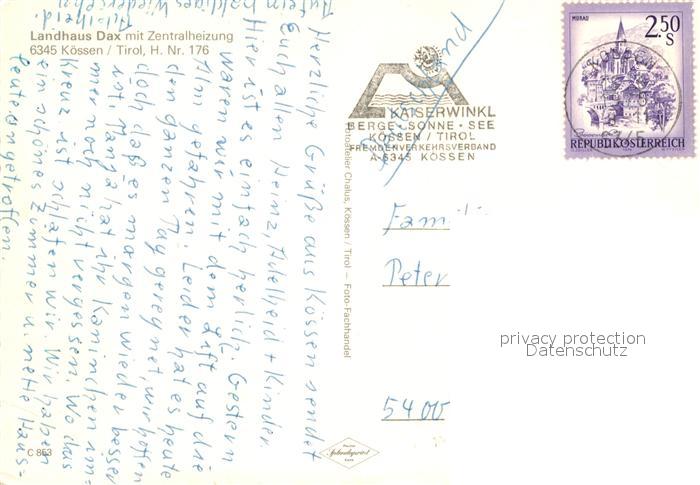 Landhaus Dax mit Zentralheizung
6345 Kössen / Tirol, H. Nr. 176
Herzliche Grüße aus Kössen sendet
Euch allen Heinz, Adelheid + Kinder.
Hier ist es einfach herlich. Gestern
waren wir mit dem Lift auf die
Alm gefahren. Leider hat es heute
den ganzen Tag geregnet, wir hoffen
doch daß es morgen wieder besser
hat ihr Kaninchen im=
mer noch nicht vergessen. Wo das
Kreuz ist schlafen wir. Wir haben
ein schönes Zimmer u. nette Haus=
leute angetroffen.
Auf ein baldiges Wiedersehn
C 863
Fotoatelier Chalus, Kössen / Tirol – Foto-Fachhandel
KAISERWINKL
BERGE · SONNE · SEE
KÖSSEN / TIROL
FREMDENVERKEHRSVERBAND
A-6345 KÖSSEN
MURAU
2.50
S
REPUBLIK ÖSTERREICH
Fam
Peter
5400
privacy protection
Datenschutz